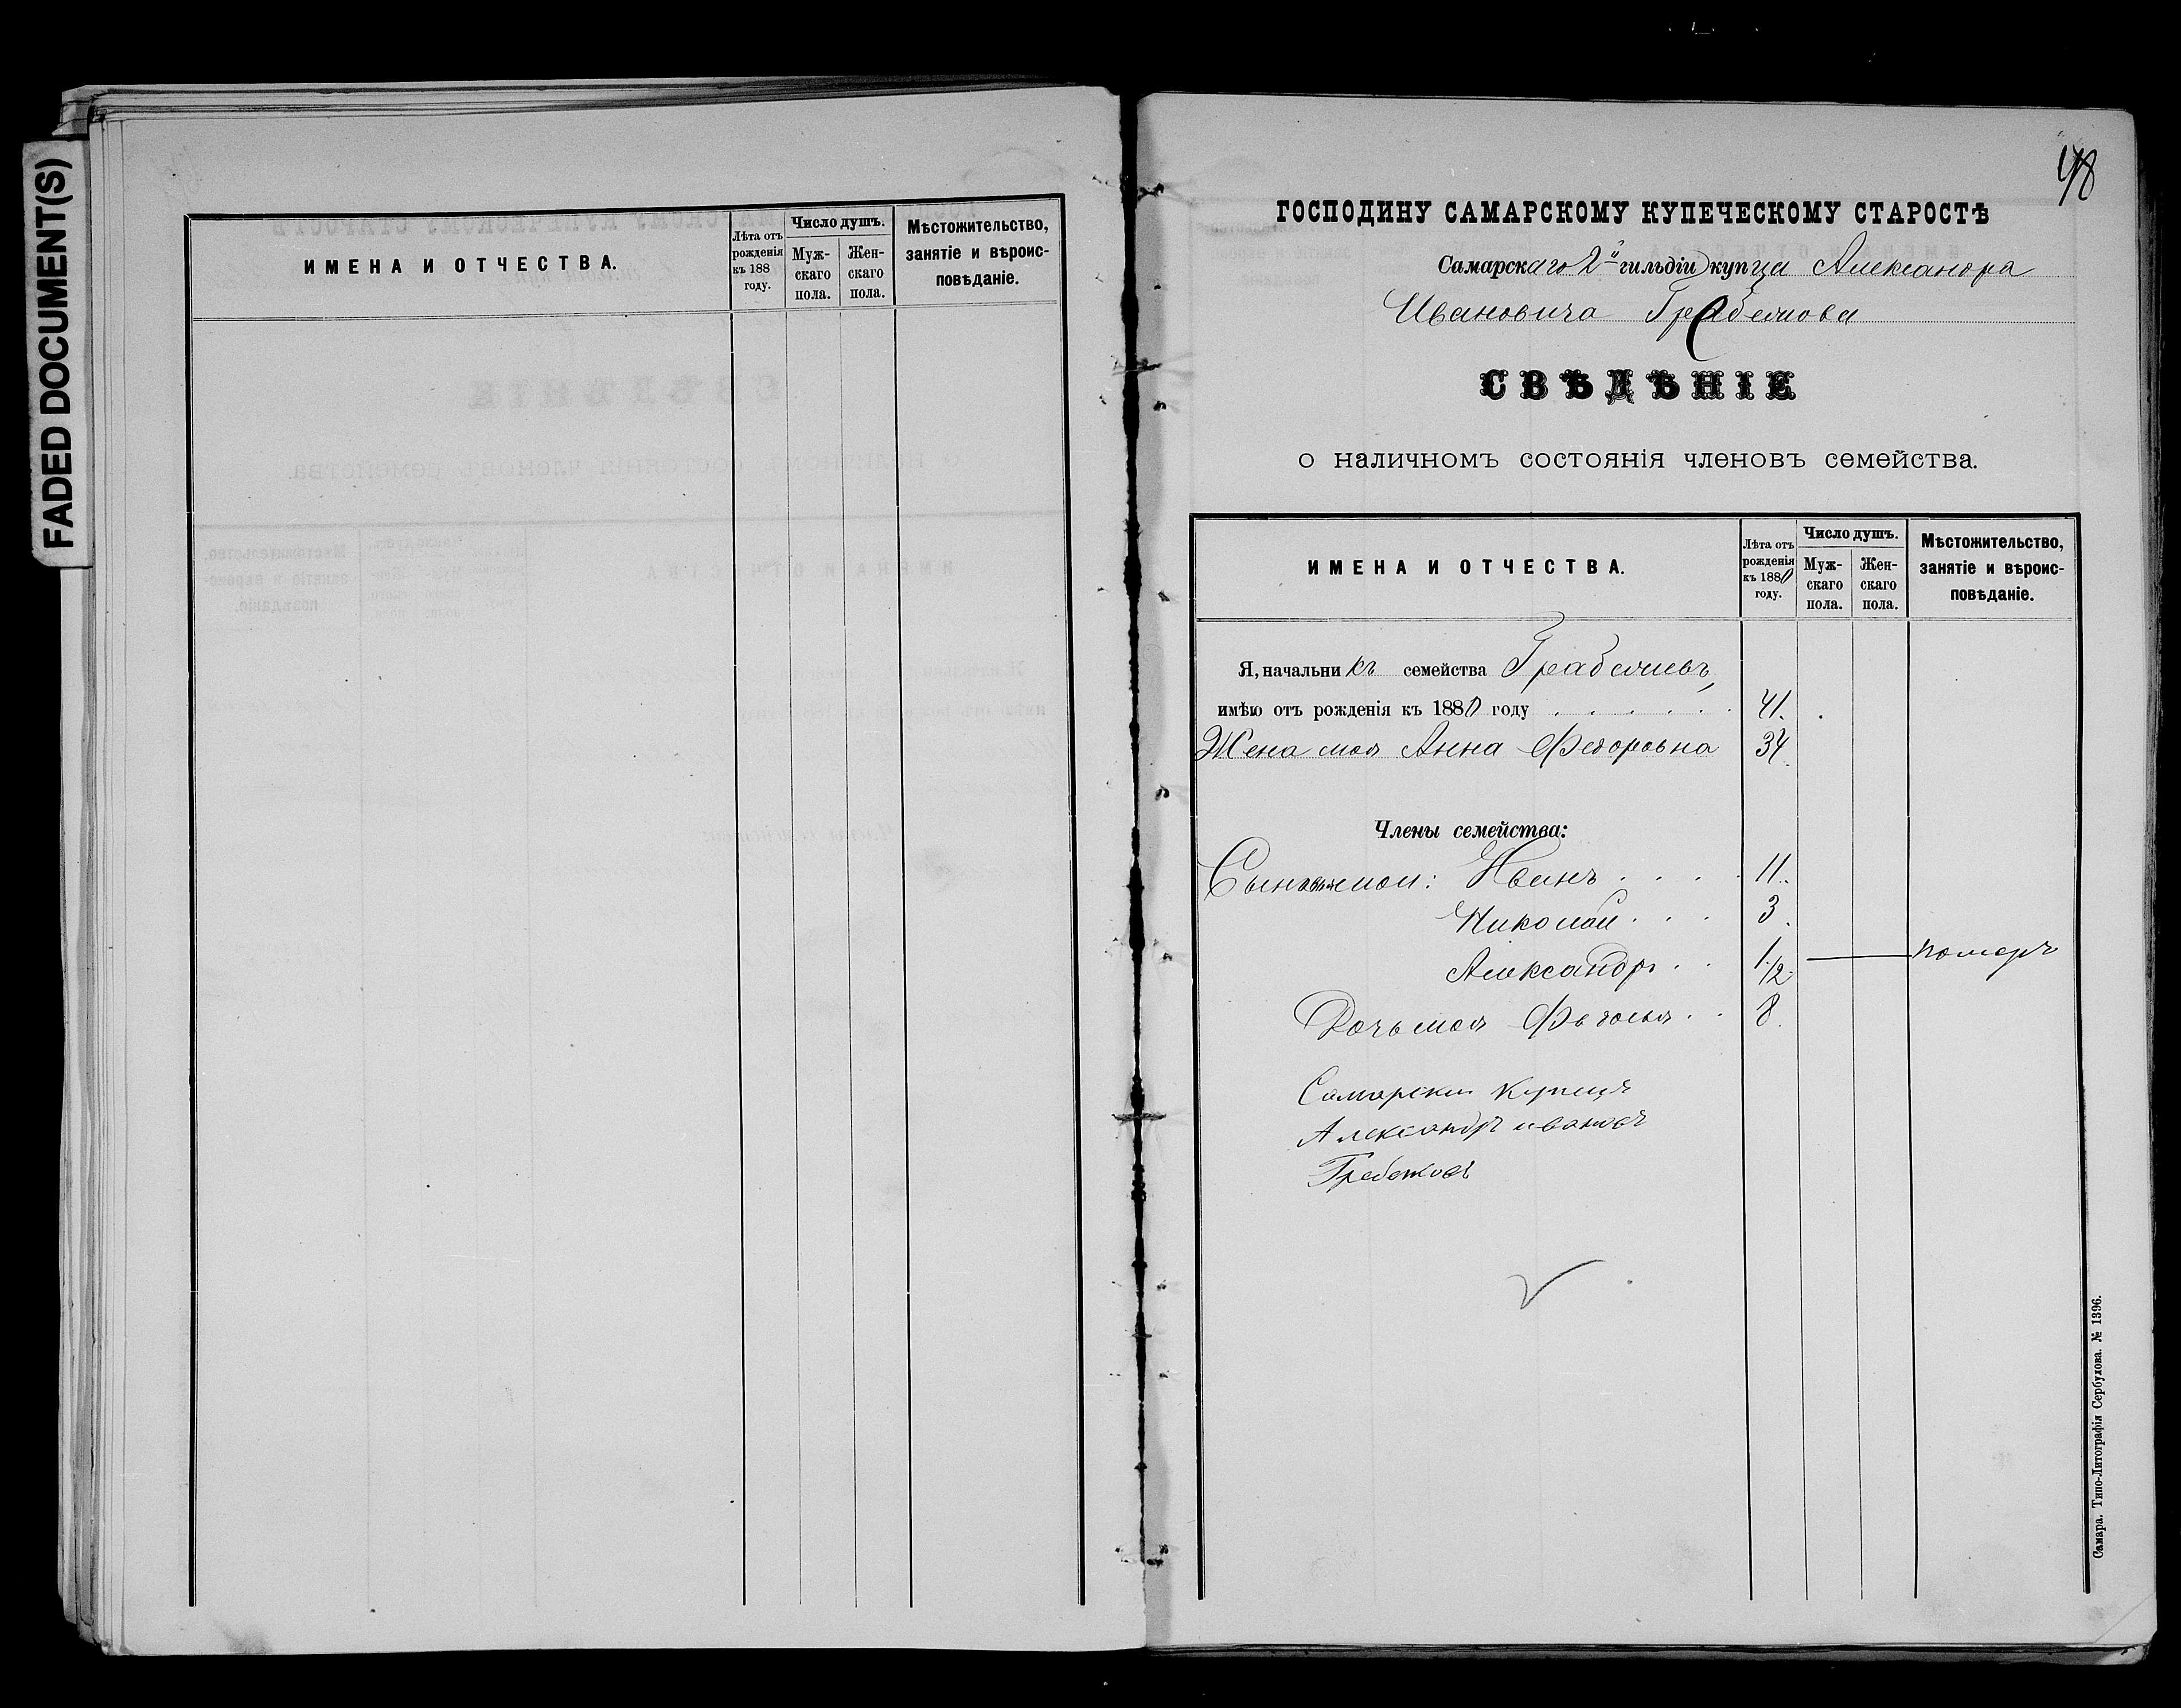 FADED DOCUMENT(S)
ИМЕНА И ОТЧЕСТВА.
Лѣта отъ рожденія къ 188 году.
Число душъ.
Муж-скаго пола.
Жен-скаго пола.
Мѣстожительство, занятіе и вѣроис-повѣданіе.
ГОСПОДИНУ САМАРСКОМУ КУПЕЧЕСКОМУ СТАРОСТѢ
Самарскаго 2й гильдіи купца Александра
Ивановича
СВѢДѢНІЕ
о наличномъ состоянія членовъ семейства.
ИМЕНА И ОТЧЕСТВА.
Лѣта отъ рожденія къ 1880 году.
Число душъ.
Муж-скаго пола.
Жен-скаго пола.
Мѣстожительство, занятіе и вѣроис-повѣданіе.
Я, начальникъ семейства
имѣю отъ рожденія къ 1880 году . . . . . . 41.
Жена моя Анна Федоровна 34
Члены семейства:
Сыновья мои: Иванъ . . . . 11.
Николай . . . 3.
Александръ . . 1/2 — померъ
Дочь моя . . 8.
Самарски купецъ
Александръ ивановъ
Самара. Типо-Литографія Сербулова. № 1396.